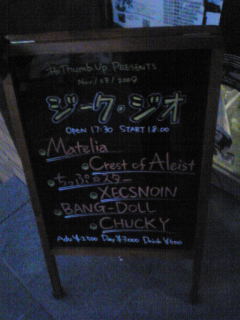 Thumb Up PRESENTS
ジーク・ジオ
OPEN 17:30 START 18:00
Matelia
Crest of Aleist
ちっぷ スター
XECSNOIN
BANG-DOLL
CHUCKY
Adv Day Drink